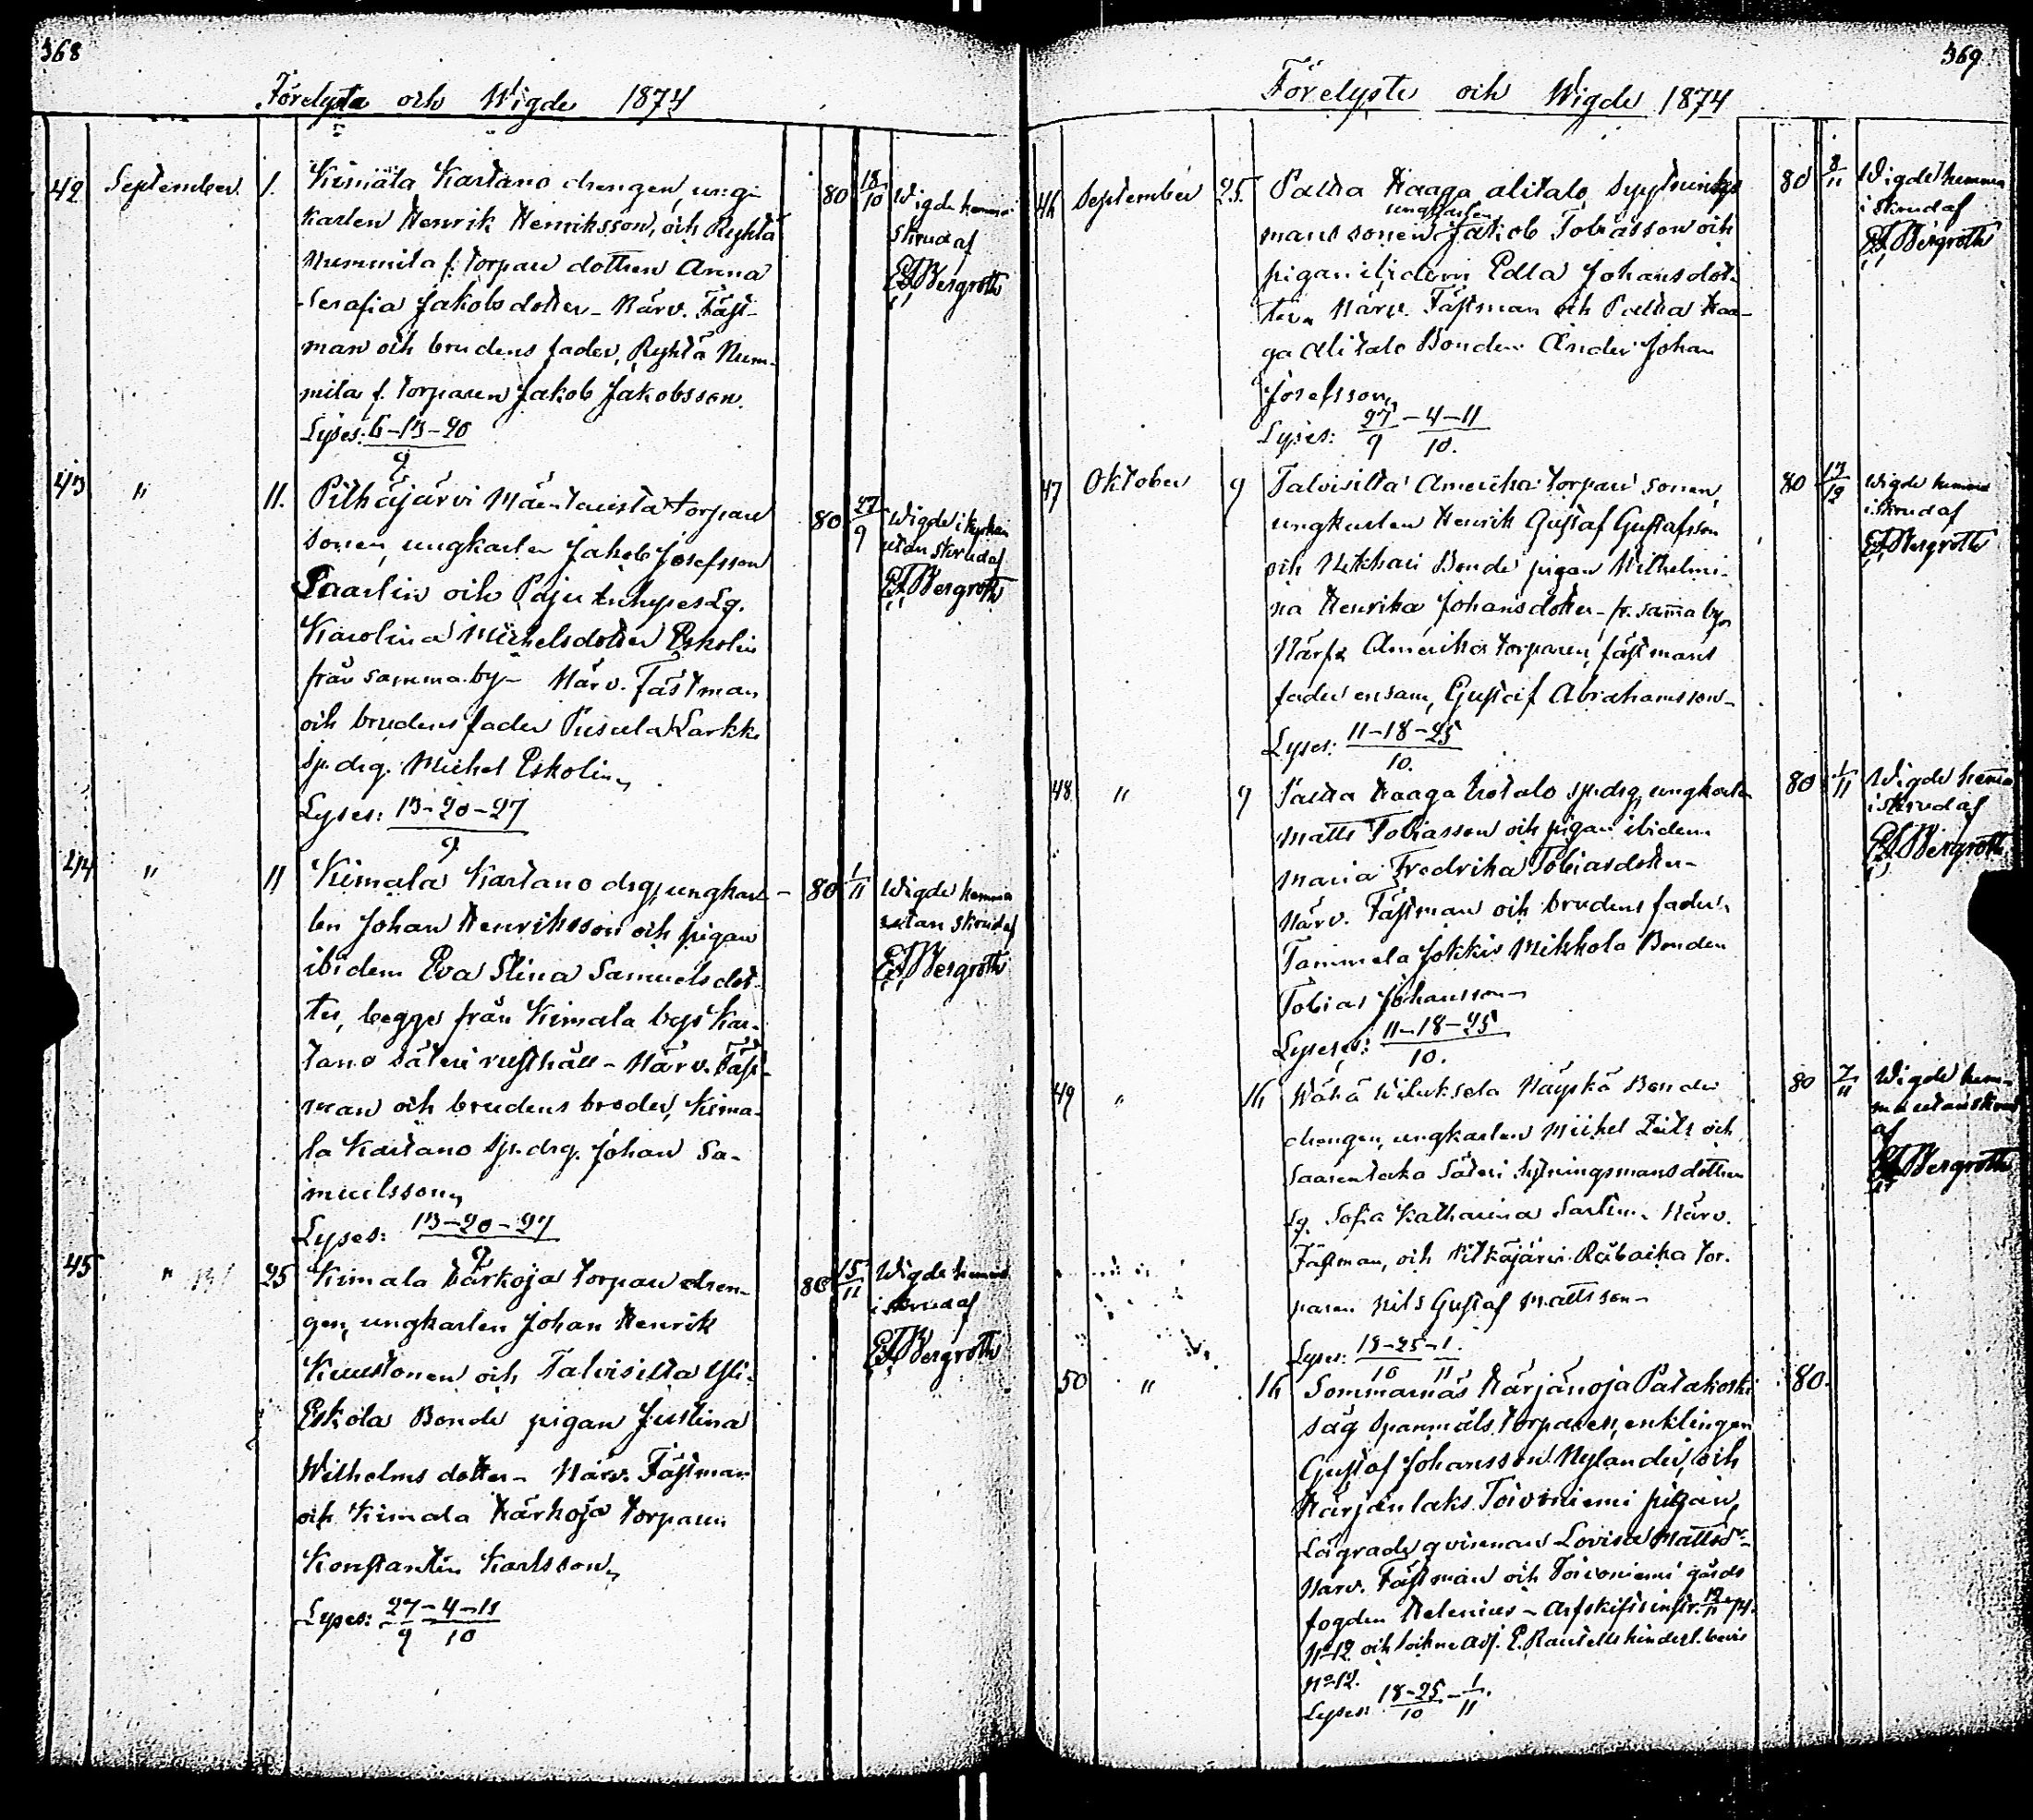 368
Förelysta och Wigde 1874
42 September 1. Kimala Kartano drengen, ung-
karlen Henrik Henriksson, och Ryhtä
Nummila f. torpare dottren Anna
Serafia Jakobsdotter - Närv. Fäst-
man och brudens fader, Ryhtä Num-
mila f. torparen Jakob Jakobsson.
Lyses: 6-13-20
9
80 18/10 Wigde hemma
i skrud af
EJBergroth
43 " 11. Pitkäjärvi Mäentausta torpare
sonen, ungkarlen Jakob Josefsson
Saarlin och Paju Lg.
Karolina Michelsdotter Eskolin
från samma by - Närv. Fästman
och brudens fader Pusula Larkki
sp.drg. Michel Eskolin
Lyses: 13-20-27
9
80 27/9 Wigde i kyrkan
utan skrud af
EJBergroth
44 " 11 Kimala Kartano drg, ungkar-
len Johan Henriksson och pigan
ibidem Eva Stina Samuelsdot-
ter, begge från Kimala bys Kar-
tano Säteri rusthåll - Närv. Fäst-
man och brudens broder, Kima-
la Kartano sp.drg. Johan Sa-
muelsson
Lyses: 13-20-27
9
80 1/11 Wigde hemma
utan skrud af
EJBergroth
45 " 25 Kimala Härkoja torpare dren-
gen, ungkarlen Johan Henrik
Kuustonen och Talvisilta Yli-
Eskola Bonde pigan Justina
Wilhelmsdotter - Närv. Fästman
och Kimala Härkoja torparen
Konstantin Karlsson
Lyses: 27-4-11
9 10
80 15/11 Wigde hemma
i skrud af
EJBergroth
369
Förelyste och Wigde 1874
46 September 25. Palta Haaga alitalo Syytnings
ungkarlen
mans sonen Jakob Tobiasson och
pigan ibidem Edla Johansdot-
ter Närv. Fästman och Palta Haa-
ga Alitalo Bonden Ander Johan
Josefsson
Lyses: 27-4-11
9 10.
80 8/11 Wigde hemma
i skrud af
EJBergroth
47 Oktober 9 Talvisilta Amerika torpare sonen,
ungkarlen Henrik Gustaf Gustafsson
och Bonde pigan Wilhelmi-
na Henrika Johansdotter - fr. samma by
Närv. Amerika torparen, fästmans
fader ensam, Gustaf Abrahamsson -
Lyses: 11-18-25
10.
80 13/12 Wigde hemma
i skrud af
EJBergroth
48 " 9 Palta Haaga Isotalo sp.drg, ungkarlen
Matts Tobiasson och pigan ibidem
Maria Fredrika Tobiasdotter -
Närv. Fästman och brudens fader
Tammela Jokkis Mikkola Bonden
Tobias Johansson -
Lyses: 11-18-25
10.
80 1/11 Wigde hemma
i skrud af
EJBergroth
49 " 16 Wähä Wiluksela Näyskä Bonde
drengen, ungkarlen Michel Feits och
Saarentaka Säteri Sytningsmans dottren
Lg. Sofia Katharina Sarlin - Närv.
Fästman, och Pitkäjärvi Räbacka tor-
paren Nils Gustaf Mattsson -
Lyses: 18-25-1.
10 11
80 7/11 Wigde hem-
ma utan skrud
af
EJBergroth
50 " 16 Sommarnäs Härjänoja Patakoski
såg spannmåls torparen, enklingen
Gustaf Johansson Nylander, och
Härjänlaks Toivoniemi pigan,
Lägrade qvinnan Lovisa Mattsdr-
Närv. Fästman och Toivoniemi gårds
fogden Helenius - Arfskiftsinstr. 12/11 74.
No 12 och sockne adj. E. hindersl. bevis
No 12.
Lyses: 18-25-1.
10 11
80.